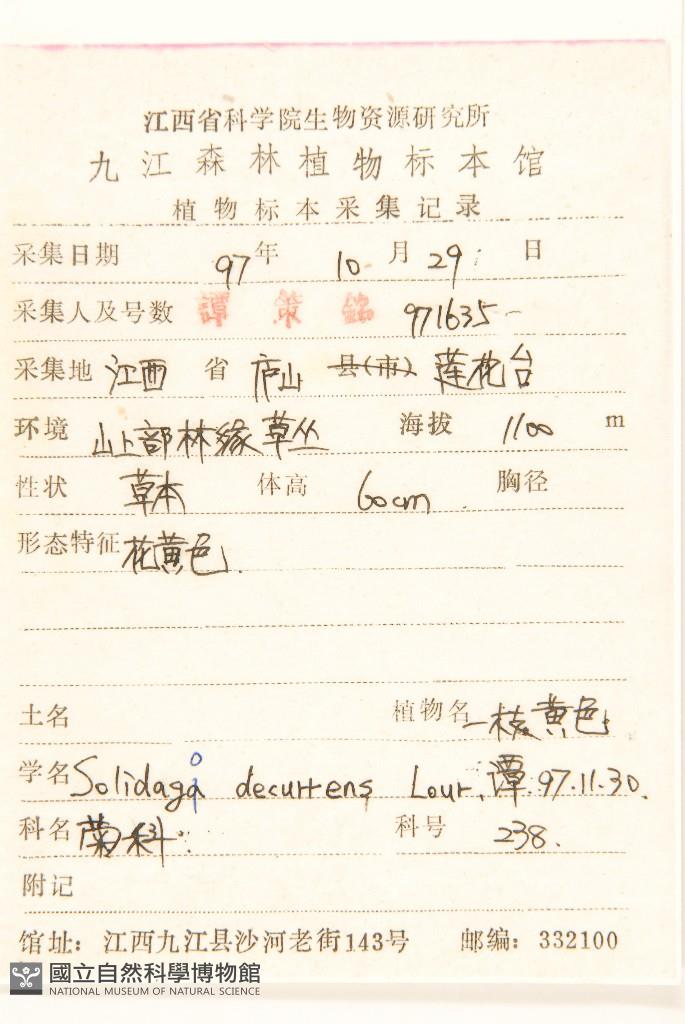 江西省科学院生物资源研究所
九江森林植物标本馆
植物标本采集记录
采集日期 97年 10月 29日
采集人及号数 譚策銘 971635
采集地 江西 省 庐山 县(市) 莲花台
环境 山上部林缘草丛 海拔 1100 m
性状 草本 体高 60cm 胸径
形态特征 花黄色.
土名 植物名 一枝黄花
学名 Solidaga decurrens Lour. 谭. 97.11.30.
o
科名 菊科 科号 238.
附记
馆址：江西九江县沙河老街143号 邮编：332100
國立自然科學博物館
NATIONAL MUSEUM OF NATURAL SCIENCE